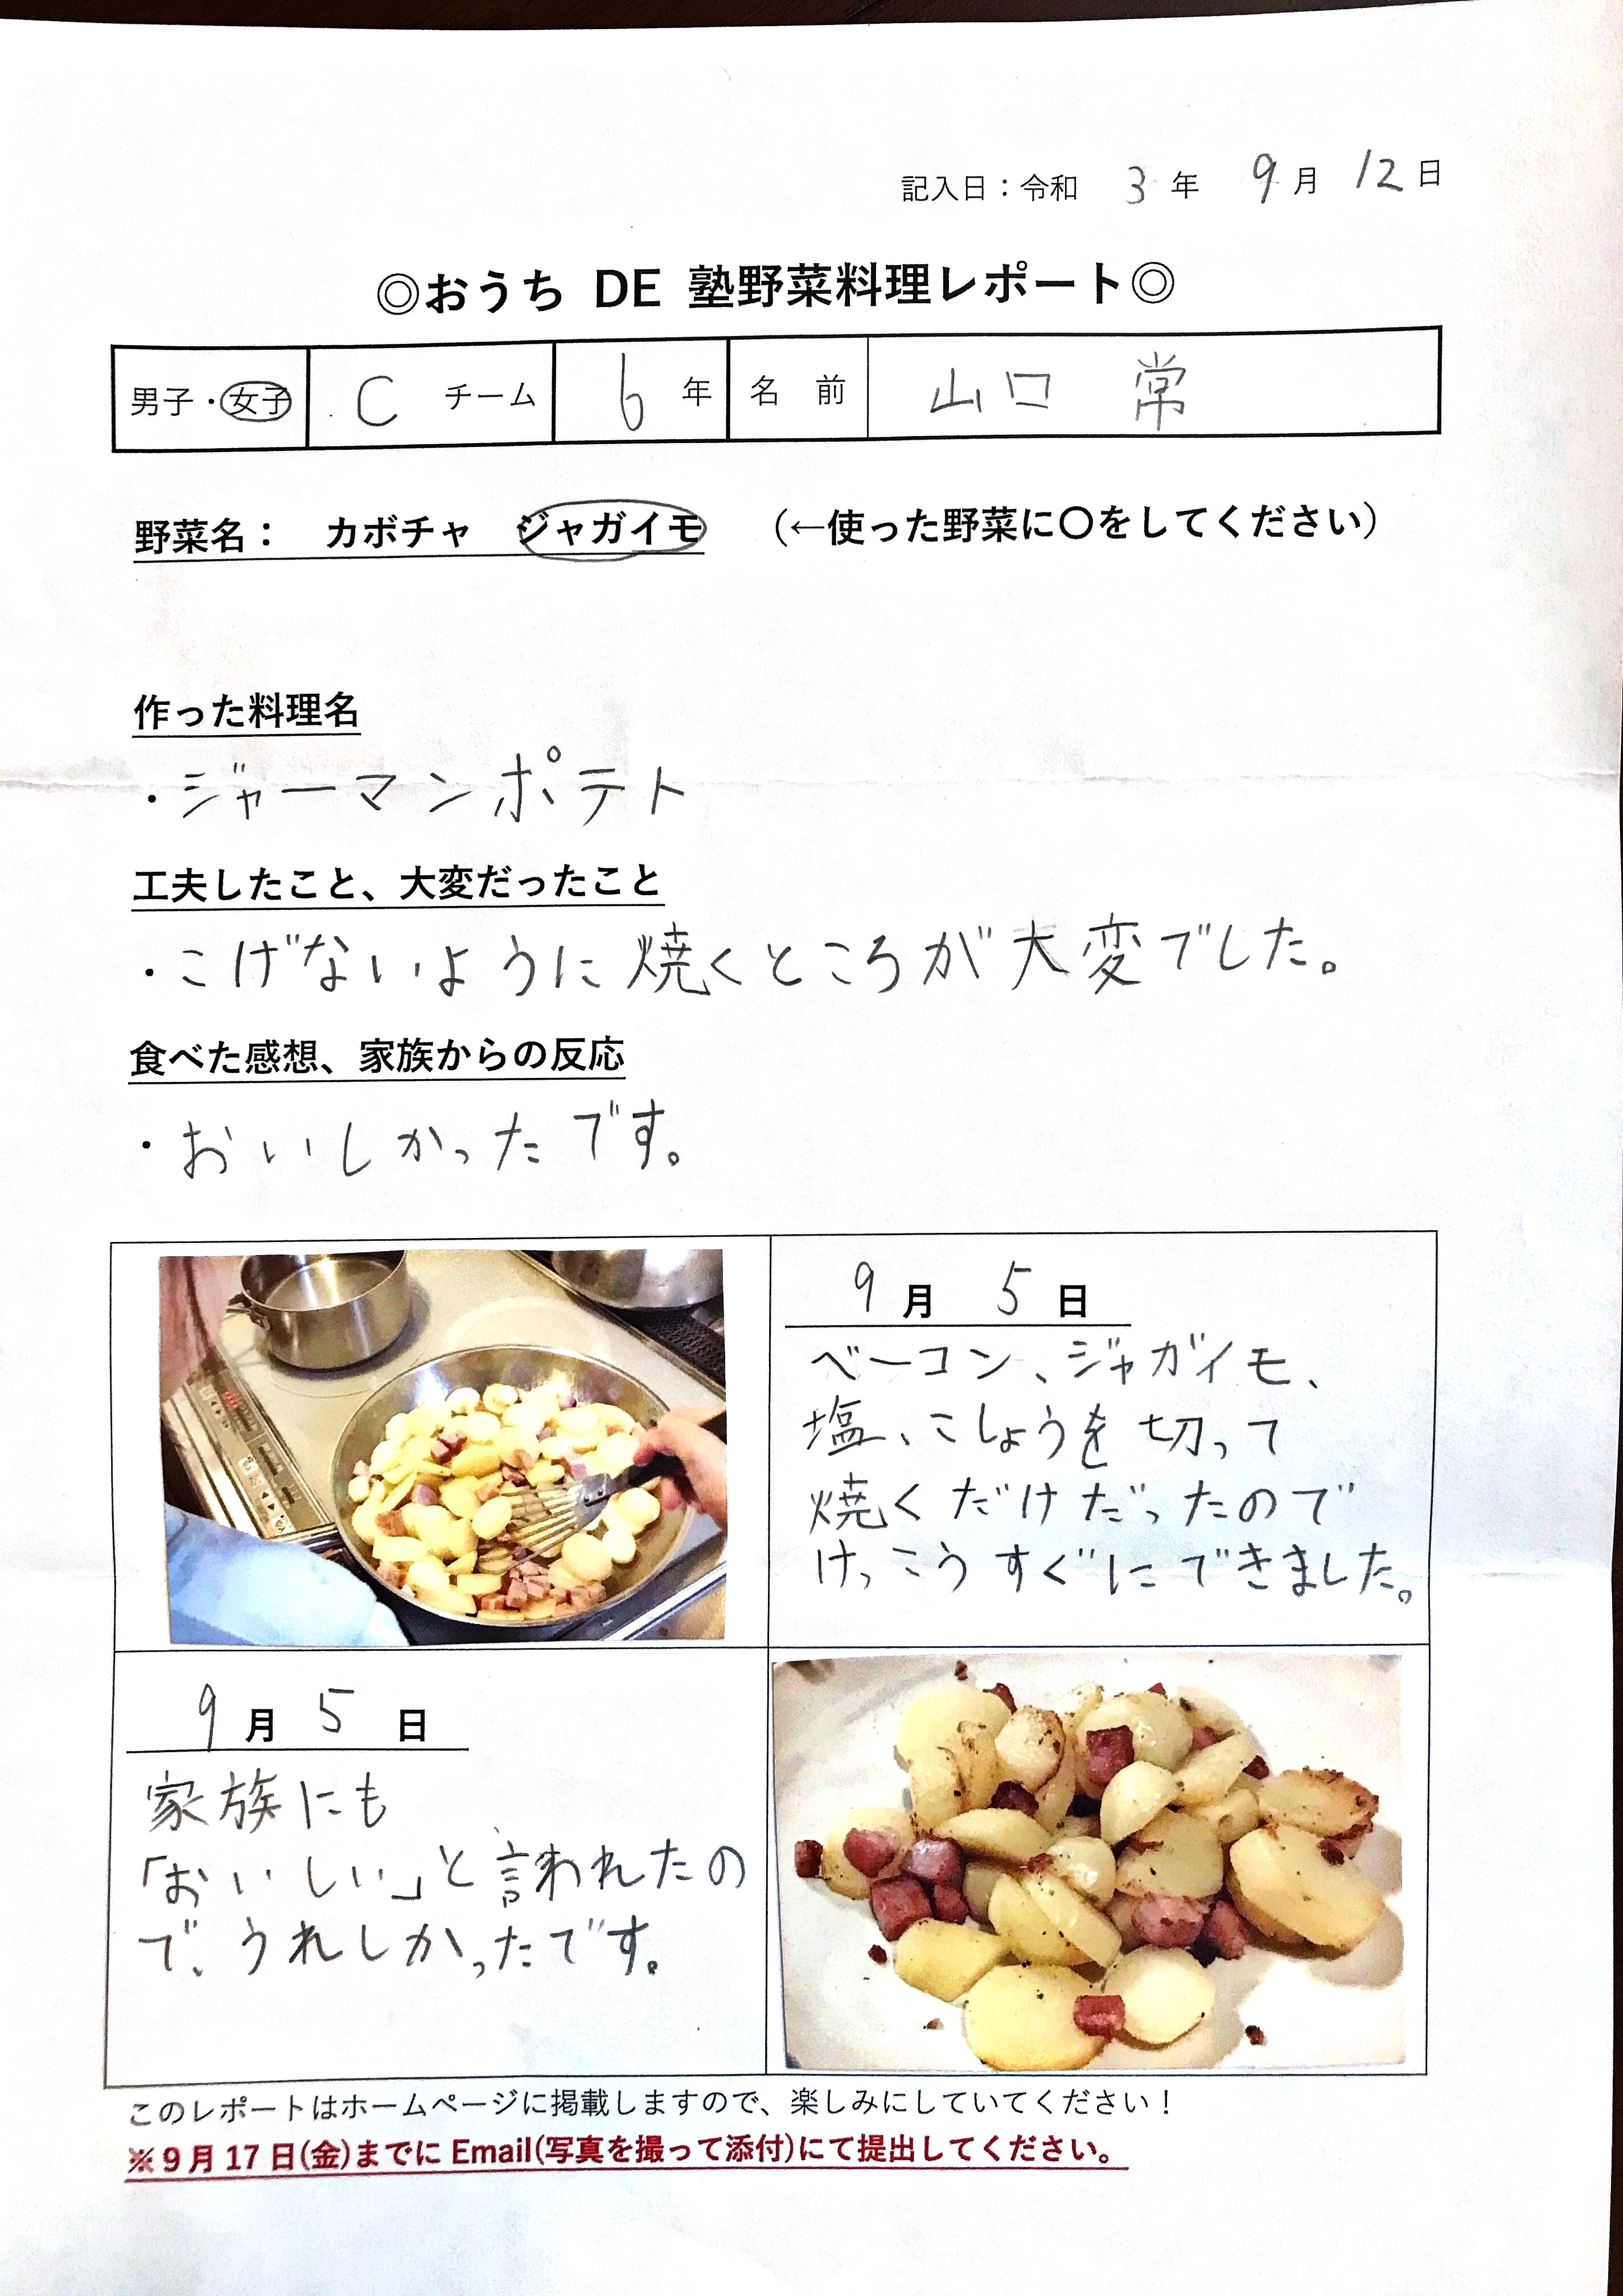 記入日：令和 3 年 9 月 12 日
◎おうち DE 塾野菜料理レポート◎
男子・女子 C チーム 6 年 名 前 山口 常
野菜名： カボチャ ジャガイモ （←使った野菜に〇をしてください）
作った料理名
・ジャーマンポテト
工夫したこと、大変だったこと
・こげないように焼くところが大変でした。
食べた感想、家族からの反応
・おいしかったです。
9 月 5 日
ベーコン、ジャガイモ、
塩、こしょうを切って
焼くだけだったので
けっこうすぐにできました。
9 月 5 日
家族にも
「おいしい」と言われたの
で、うれしかったです。
このレポートはホームページに掲載しますので、楽しみにしていてください！
※9月17日(金)までにEmail(写真を撮って添付)にて提出してください。